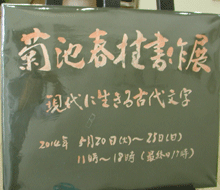 菊池春桂書作展
現代に生きる古代文字
2014年 5月20日(火)〜25日(日)
11時〜18時(最終日17時)